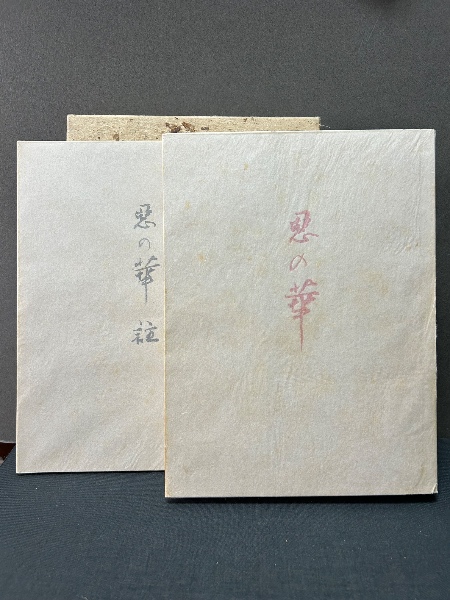 悪の華 註
悪の華